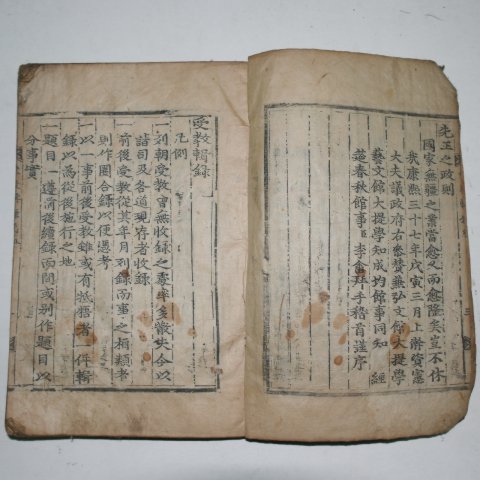 先王之政則
國家無疆之業當愈久而愈隆矣豈不休
哉康熙三十七年戊寅三月上澣資憲
大夫議政府右參贊兼弘文館大提學
藝文館大提學知成均館事同知 經
筵春秋館事臣李 手稽首謹序
受敎輯錄
凡例
一列朝受敎曾無收錄之處率多散失今以
諸司及各道現存者收錄
一前後受敎從其年月列錄而事之相類者
則作圈合錄以便憑考
一以一事前後受敎雖或有牴牾者一件輯
錄以爲從後施行之地
一題目一遵前後續錄而間或別作題目以
分事實